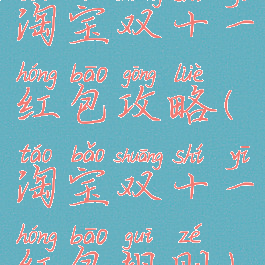 淘宝双十一
hóng bāo gōng lüè
红包攻略(
táo bǎo shuāng shí yī
淘宝双十一
hóng bāo guī zé
红包规则)